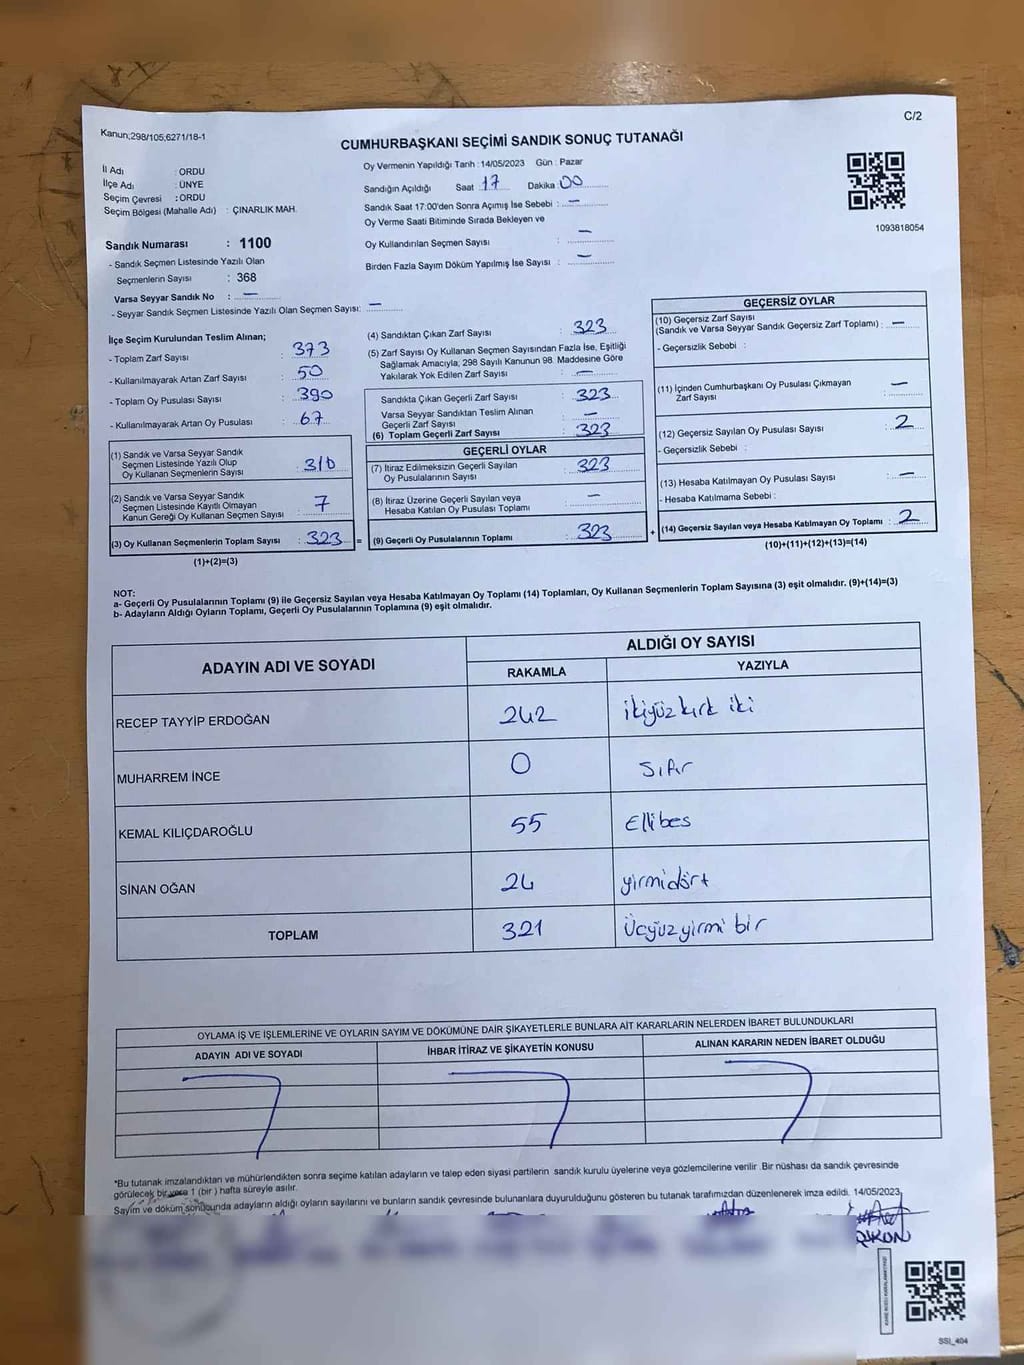 Kanun;298/105;6271/18-1
C/2
CUMHURBAŞKANI SEÇİMİ SANDIK SONUÇ TUTANAĞI
İl Adı : ORDU
İlçe Adı : ÜNYE
Seçim Çevresi : ORDU
Seçim Bölgesi (Mahalle Adı) : ÇINARLIK MAH.
Oy Vermenin Yapıldığı Tarih : 14/05/2023 Gün : Pazar
Sandığın Açıldığı Saat : 17 Dakika : 00
Sandık Saat 17:00'den Sonra Açımış İse Sebebi : —
Oy Verme Saati Bitiminde Sırada Bekleyen ve
Oy Kullandırılan Seçmen Sayısı : —
Birden Fazla Sayım Döküm Yapılmış İse Sayısı : —
1093818054
Sandık Numarası : 1100
- Sandık Seçmen Listesinde Yazılı Olan
Seçmenlerin Sayısı : 368
Varsa Seyyar Sandık No : —
- Seyyar Sandık Seçmen Listesinde Yazılı Olan Seçmen Sayısı: —
İlçe Seçim Kurulundan Teslim Alınan;
- Toplam Zarf Sayısı : 373
- Kullanılmayarak Artan Zarf Sayısı : 50
- Toplam Oy Pusulası Sayısı : 390
- Kullanılmayarak Artan Oy Pusulası : 67
(1) Sandık ve Varsa Seyyar Sandık
Seçmen Listesinde Yazılı Olup
Oy Kullanan Seçmenlerin Sayısı : 316
(2) Sandık ve Varsa Seyyar Sandık
Seçmen Listesinde Kayıtlı Olmayan
Kanun Gereği Oy Kullanan Seçmen Sayısı : 7
(3) Oy Kullanan Seçmenlerin Toplam Sayısı : 323 =
(1)+(2)=(3)
(4) Sandıktan Çıkan Zarf Sayısı : 323
(5) Zarf Sayısı Oy Kullanan Seçmen Sayısından Fazla İse, Eşitliği
Sağlamak Amacıyla; 298 Sayılı Kanunun 98. Maddesine Göre
Yakılarak Yok Edilen Zarf Sayısı : —
Sandıkta Çıkan Geçerli Zarf Sayısı : 323
Varsa Seyyar Sandıktan Teslim Alınan
Geçerli Zarf Sayısı : —
(6) Toplam Geçerli Zarf Sayısı : 323
GEÇERLİ OYLAR
(7) İtiraz Edilmeksizin Geçerli Sayılan
Oy Pusulalarının Sayısı : 323
(8) İtiraz Üzerine Geçerli Sayılan veya
Hesaba Katılan Oy Pusulası Toplamı : —
(9) Geçerli Oy Pusulalarının Toplamı : 323 +
GEÇERSİZ OYLAR
(10) Geçersiz Zarf Sayısı
(Sandık ve Varsa Seyyar Sandık Geçersiz Zarf Toplamı) : —
- Geçersizlik Sebebi :
(11) İçinden Cumhurbaşkanı Oy Pusulası Çıkmayan
Zarf Sayısı : —
(12) Geçersiz Sayılan Oy Pusulası Sayısı : 2
- Geçersizlik Sebebi :
(13) Hesaba Katılmayan Oy Pusulası Sayısı : —
- Hesaba Katılmama Sebebi :
(14) Geçersiz Sayılan veya Hesaba Katılmayan Oy Toplamı : 2
(10)+(11)+(12)+(13)=(14)
NOT:
a- Geçerli Oy Pusulalarının Toplamı (9) ile Geçersiz Sayılan veya Hesaba Katılmayan Oy Toplamı (14) Toplamları, Oy Kullanan Seçmenlerin Toplam Sayısına (3) eşit olmalıdır. (9)+(14)=(3)
b- Adayların Aldığı Oyların Toplamı, Geçerli Oy Pusulalarının Toplamına (9) eşit olmalıdır.
ADAYIN ADI VE SOYADI
ALDIĞI OY SAYISI
RAKAMLA YAZIYLA
RECEP TAYYİP ERDOĞAN 242 ikiyüz kırk iki
MUHARREM İNCE 0 Sıfır
KEMAL KILIÇDAROĞLU 55 Ellibes
SİNAN OĞAN 24 yirmidört
TOPLAM 321 Üçyüzyirmi bir
OYLAMA İŞ VE İŞLEMLERİNE VE OYLARIN SAYIM VE DÖKÜMÜNE DAİR ŞİKAYETLERLE BUNLARA AİT KARARLARIN NELERDEN İBARET BULUNDUKLARI
ADAYIN ADI VE SOYADI İHBAR İTİRAZ VE ŞİKAYETİN KONUSU ALINAN KARARIN NEDEN İBARET OLDUĞU
*Bu tutanak imzalandıktan ve mühürlendikten sonra seçime katılan adayların ve talep eden siyasi partilerin sandık kurulu üyelerine veya gözlemcilerine verilir .Bir nüshası da sandık çevresinde
görülecek bir yere 1 (bir ) hafta süreyle asılır.
Sayım ve döküm sonucunda adayların aldığı oyların sayılarını ve bunların sandık çevresinde bulunanlara duyurulduğunu gösteren bu tutanak tarafımızdan düzenlenerek imza edildi. 14/05/2023
SSİ_404